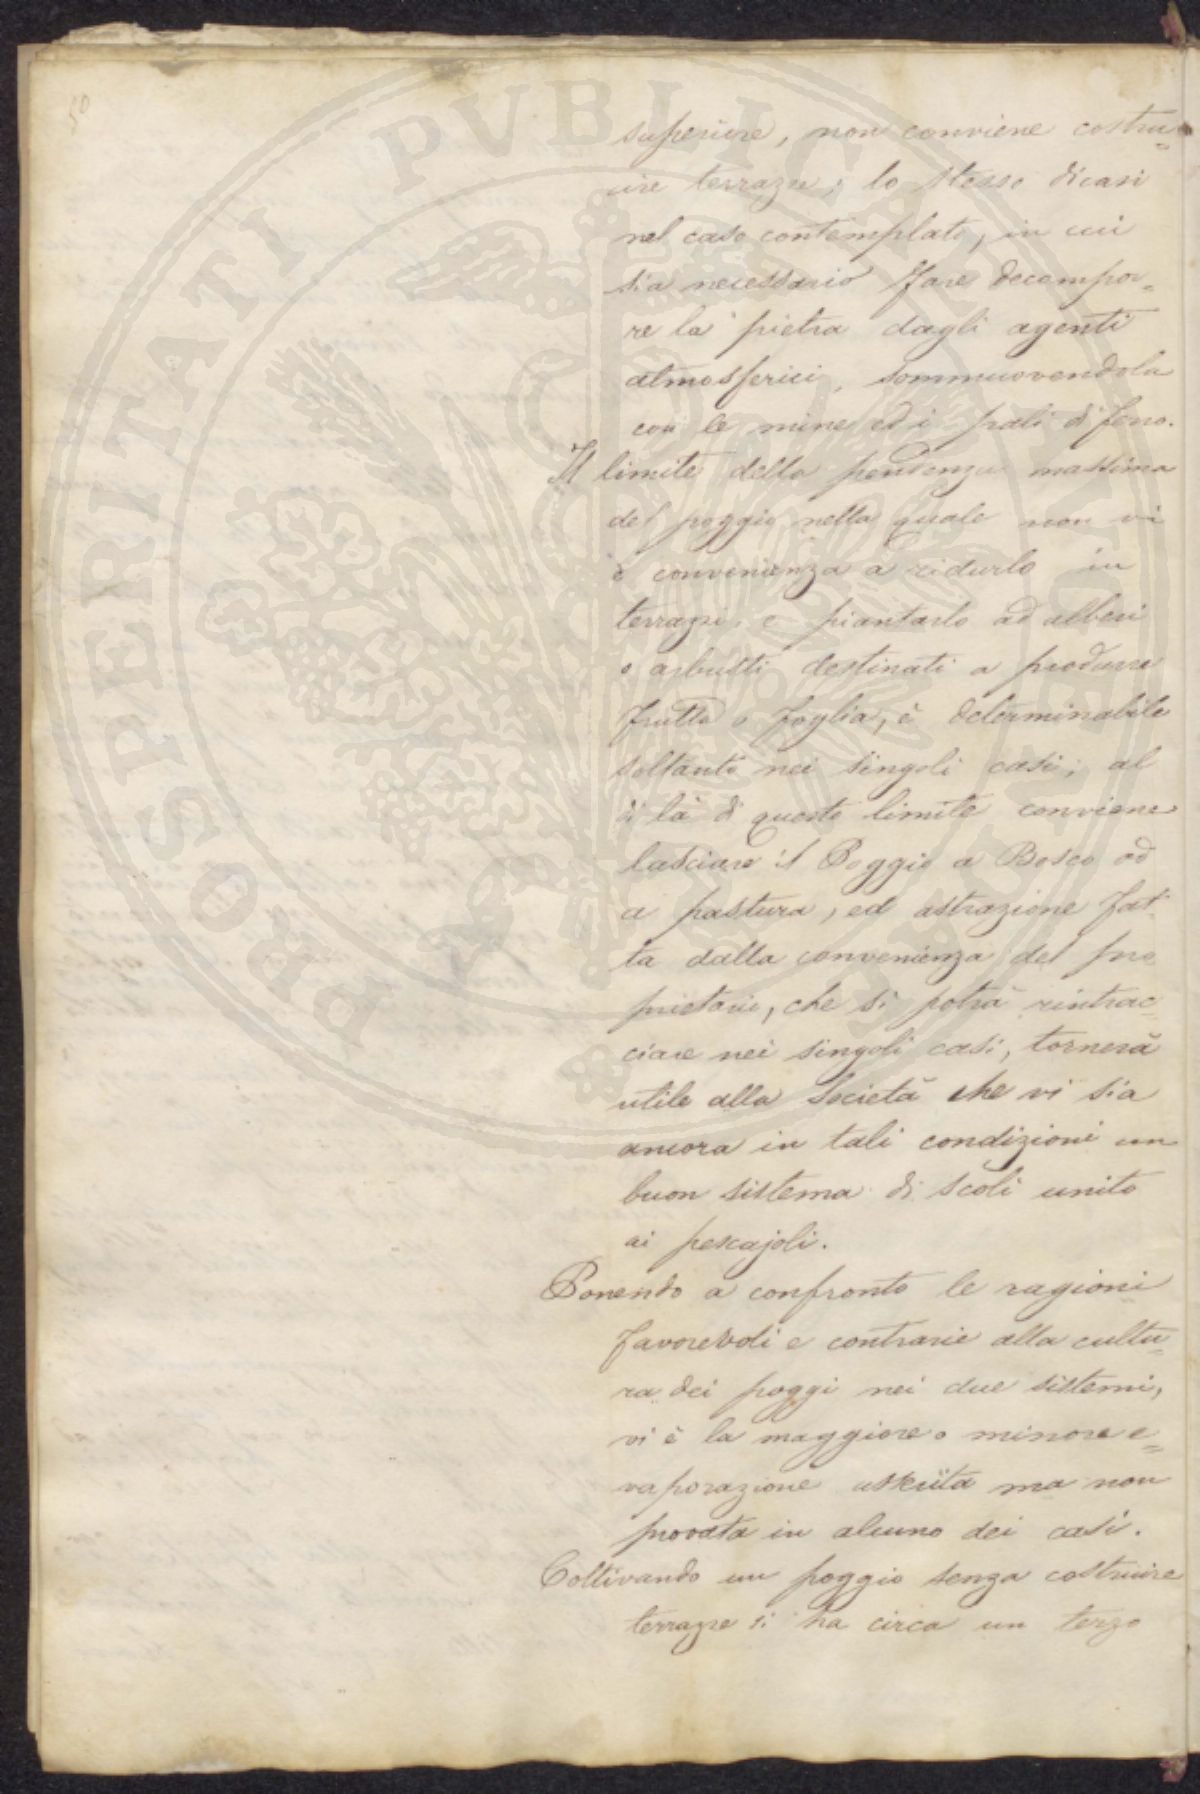 50
superiore, non conviene costru=
ire terrazze; lo stesso dicasi
nel caso contemplato, in cui
sia necessario fare decompor=
re la pietra dagli agenti
atmosferici, sommuovendola
con le mine ed i pali di ferro.
Il limite della pendenza massima
del poggio nella quale non vi
è convenienza a ridurlo in
terrazzi e piantarlo ad alberi
o arbusti destinati a produrre
frutto o foglia, è determinabile
soltanto nei singoli casi; al
di là di questo limite conviene
lasciare il Poggio a Bosco od
a pastura, ed astrazione fat=
ta dalla convenienza del pro
prietario, che si potrà rintrac=
ciare nei singoli casi, tornerà
utile alla Società che vi sia
ancora in tali condizioni un
buon sistema di scoli unito
ai pescajoli.
Ponendo a confronto le ragioni
favorevoli e contrarie alla cultu=
ra dei poggi nei due sistemi,
vi è la maggiore o minore e=
vaporazione asserita ma non
provata in alcuno dei casi.
Coltivando un poggio senza costruire
terrazze si ha circa un terzo
PROSPERITATI PVBLICAE